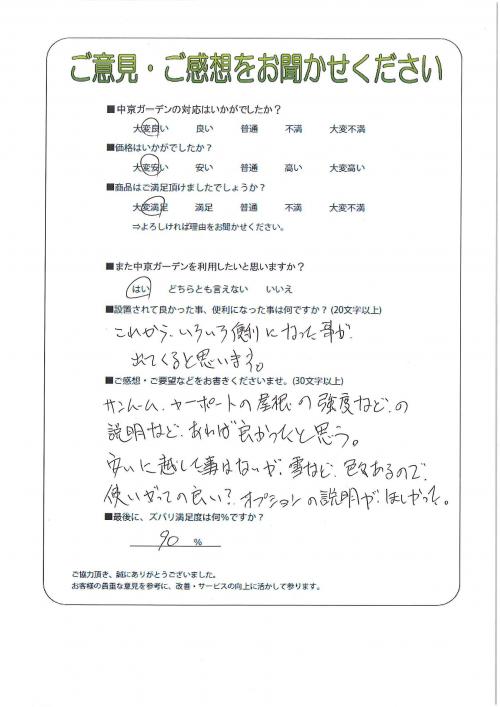 ご意見・ご感想をお聞かせください
■中京ガーデンの対応はいかがでしたか？
大変良い 良い 普通 不満 大変不満
■価格はいかがでしたか？
大変安い 安い 普通 高い 大変高い
■商品はご満足頂けましたでしょうか？
大変満足 満足 普通 不満 大変不満
⇒よろしければ理由をお聞かせください。
■また中京ガーデンを利用したいと思いますか？
はい どちらとも言えない いいえ
■設置されて良かった事、便利になった事は何ですか？(20文字以上)
これから、いろいろ便利になった事が、
出てくると思います。
■ご感想・ご要望などをお書きくださいませ。(30文字以上)
サンルーム、カーポートの屋根の強度など、の
説明など、あれば良かったと思う。
安いに越した事はないが、雪など、色々あるので、
使いがっての良い？オプションの説明が、ほしかった。
■最後に、ズバリ満足度は何%ですか？
90 %
ご協力頂き、誠にありがとうございました。
お客様の貴重な意見を参考に、改善・サービスの向上に活かして参ります。